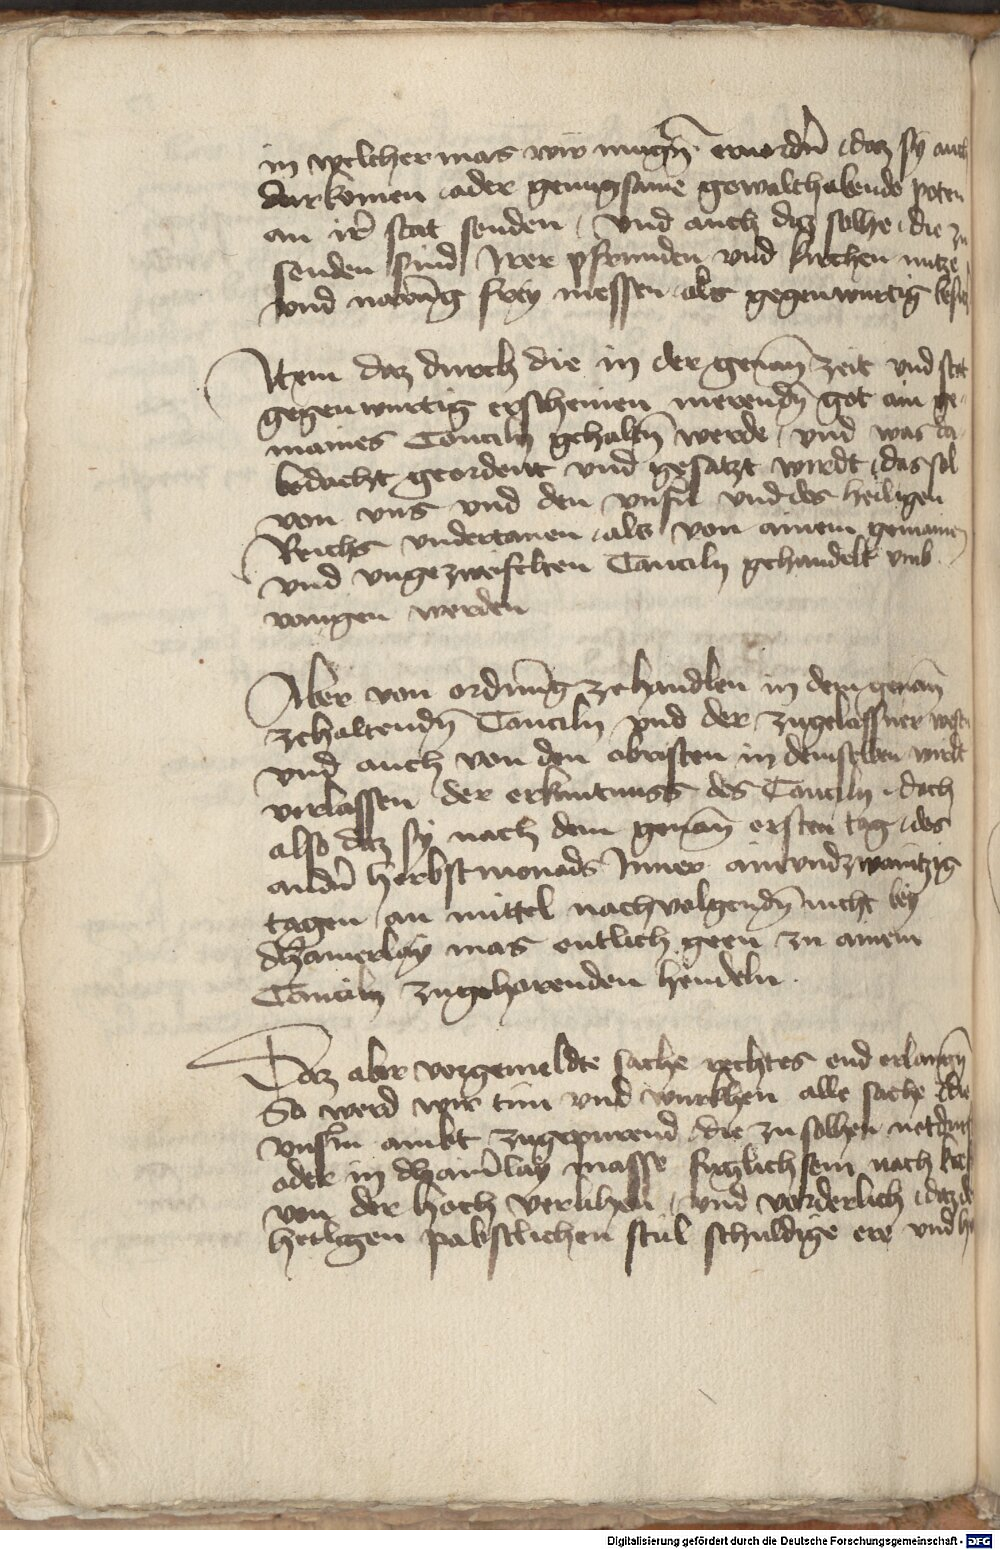 in welcher mas wir mugn̄ ervordn̄ daz sy auch
darkomen oder genugsame gewalthabende poten
an ir stat senden / vnd auch daz solhe die zu
senden sind Irer pfrunden vnd kirchen nutze
vnd vorūng frey niessen als gegenwurtig
Item daz durch die in der genan̄ zeit vnd stat
gegenwurtig erscheinen merendn̄ got ain ge
maines Conciliu gehaltn̄ werde / vnd was da
bedacht geordent vnd gesatzt wirdt das sol
von vns vnd den vnsern vnd des heiligen
Reichs vndertanen als von ainem gemainen
vnd vngezweifelten Conciliu gehandelt vmb
vangen werden
Aber von ordnūng zehandlen in dem genan̄
zehaltendn̄ Conciliu vnd der zugelassner
vnd auch von den obristen in demselben wirdt
verlassen der erkantnuss des Conciliu doch
also daz sy nach dem genan̄ ersten tag des
andn̄ herbstmonads Inner ainvndzwaintzig
tagen an mittel nachvolgendn̄ nicht bey
dhainerlay mas entlich geen zu ainem
Conciliu zugehorenden hendeln
Daz aber vorgemeldte sache rechtes end erlangn̄
So werd wir tun vnd wurkhen alle sache die
vnserm ambt zugepurend die zu solhen notdurft
oder in dhainerlay masse fuglich sein nach
von der hoch verlihen / vnd vorderlich daz de
heiligen pabstlichen stul schuldige ere vnd
Digitalisierung gefördert durch die Deutsche Forschungsgemeinschaft - DFG